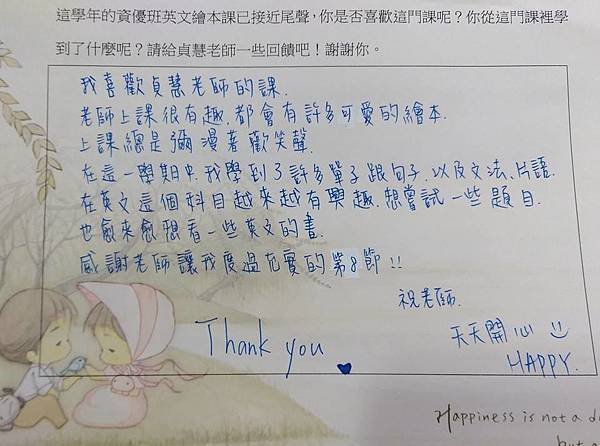 這學年的資優班英文繪本課已接近尾聲，你是否喜歡這門課呢？你從這門課裡學
到了什麼呢？請給貞慧老師一些回饋吧！謝謝你。
我喜歡貞慧老師的課.
老師上課很有趣.都會有許多可愛的繪本.
上課總是彌漫著歡笑聲.
在這一學期中.我學到了許多單字跟句子.以及文法、片語.
在英文這個科目越來越有興趣.想嘗試一些題目.
也愈來愈想看一些英文的書.
感謝老師讓我度過充實的第8節!!
祝老師.
天天開心
Thank you
HAPPY.
Happiness is not a
but